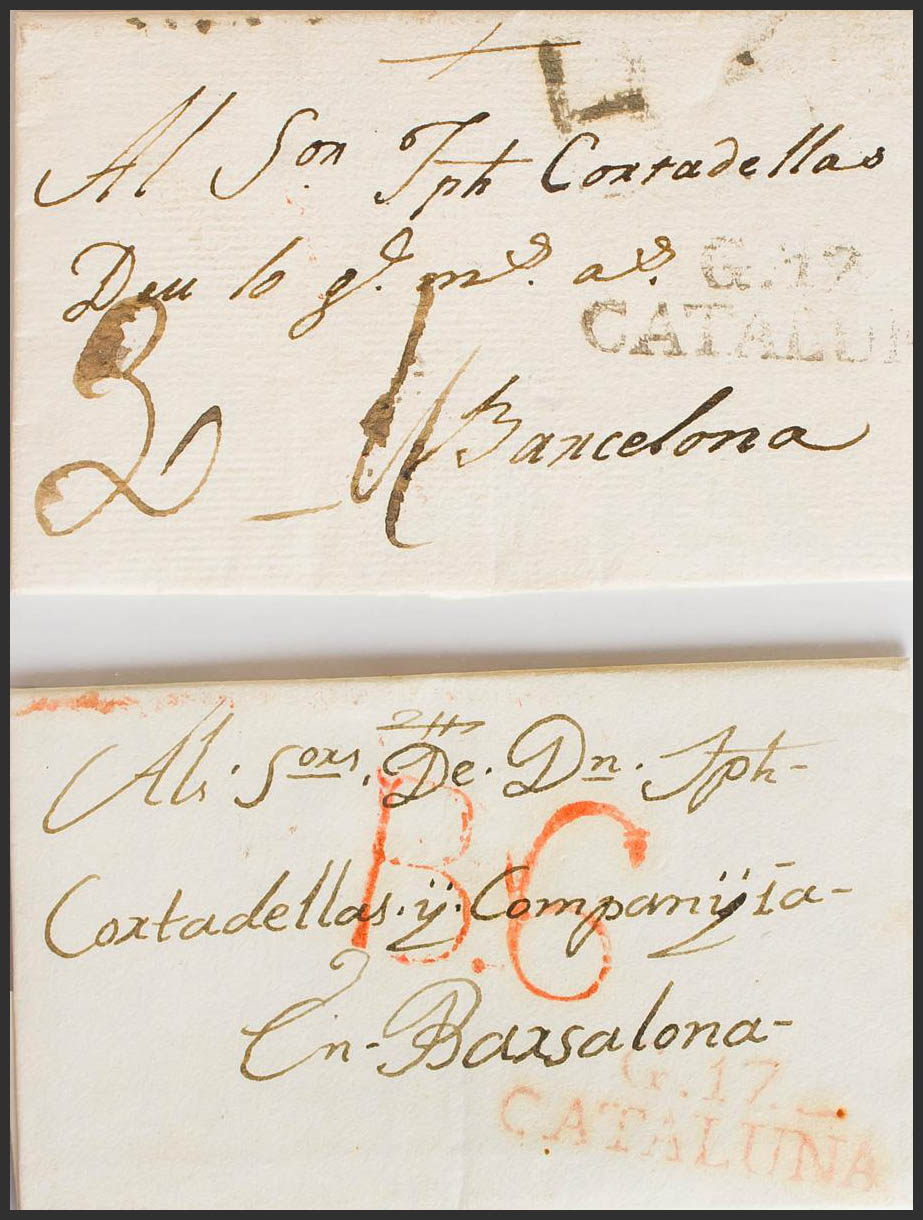 Al Sor Jph Cortadellas
Deu lo gē. ms. as.
G.17
CATALUÑ
Barcelona
Als. Sors. De. Dn. Jph-
B.C
Cortadellas. ÿ. Companÿia-
En- Barsalona-
G.17.
CATALUNA